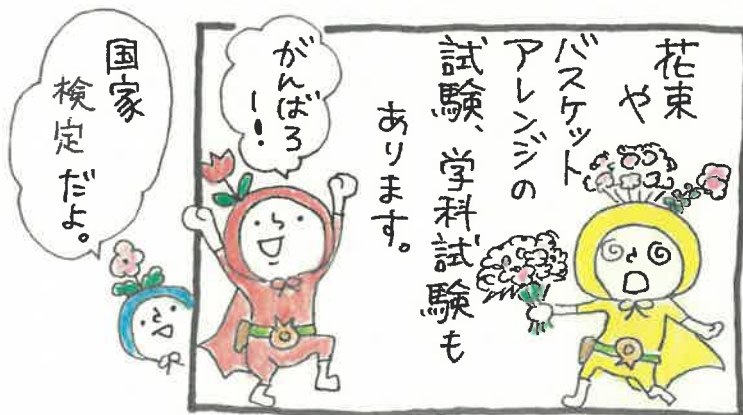 花束
や
バスケット
アレンジの
試験、学科試験も
あります。
がんばろ
ー!
国家
検定だよ。